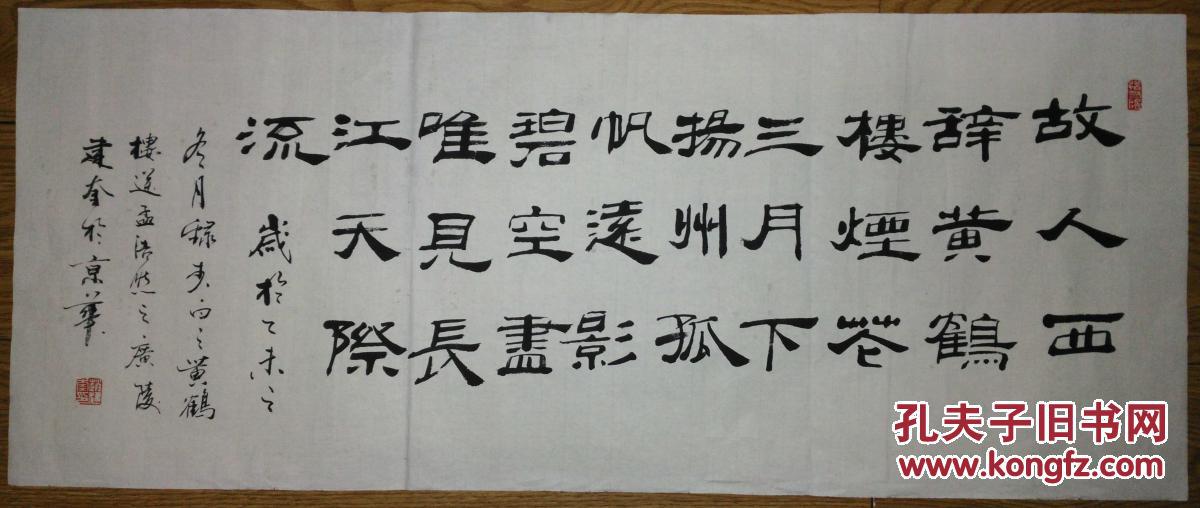 故人西
辞黄鹤
樓煙花
三月下
揚州孤
帆遠影
碧空盡
唯見長
江天際
流
歲於乙未之
冬月録李白之黄鶴
樓送孟浩然之廣陵
建奎於京華
孔夫子旧书网
www.kongfz.com